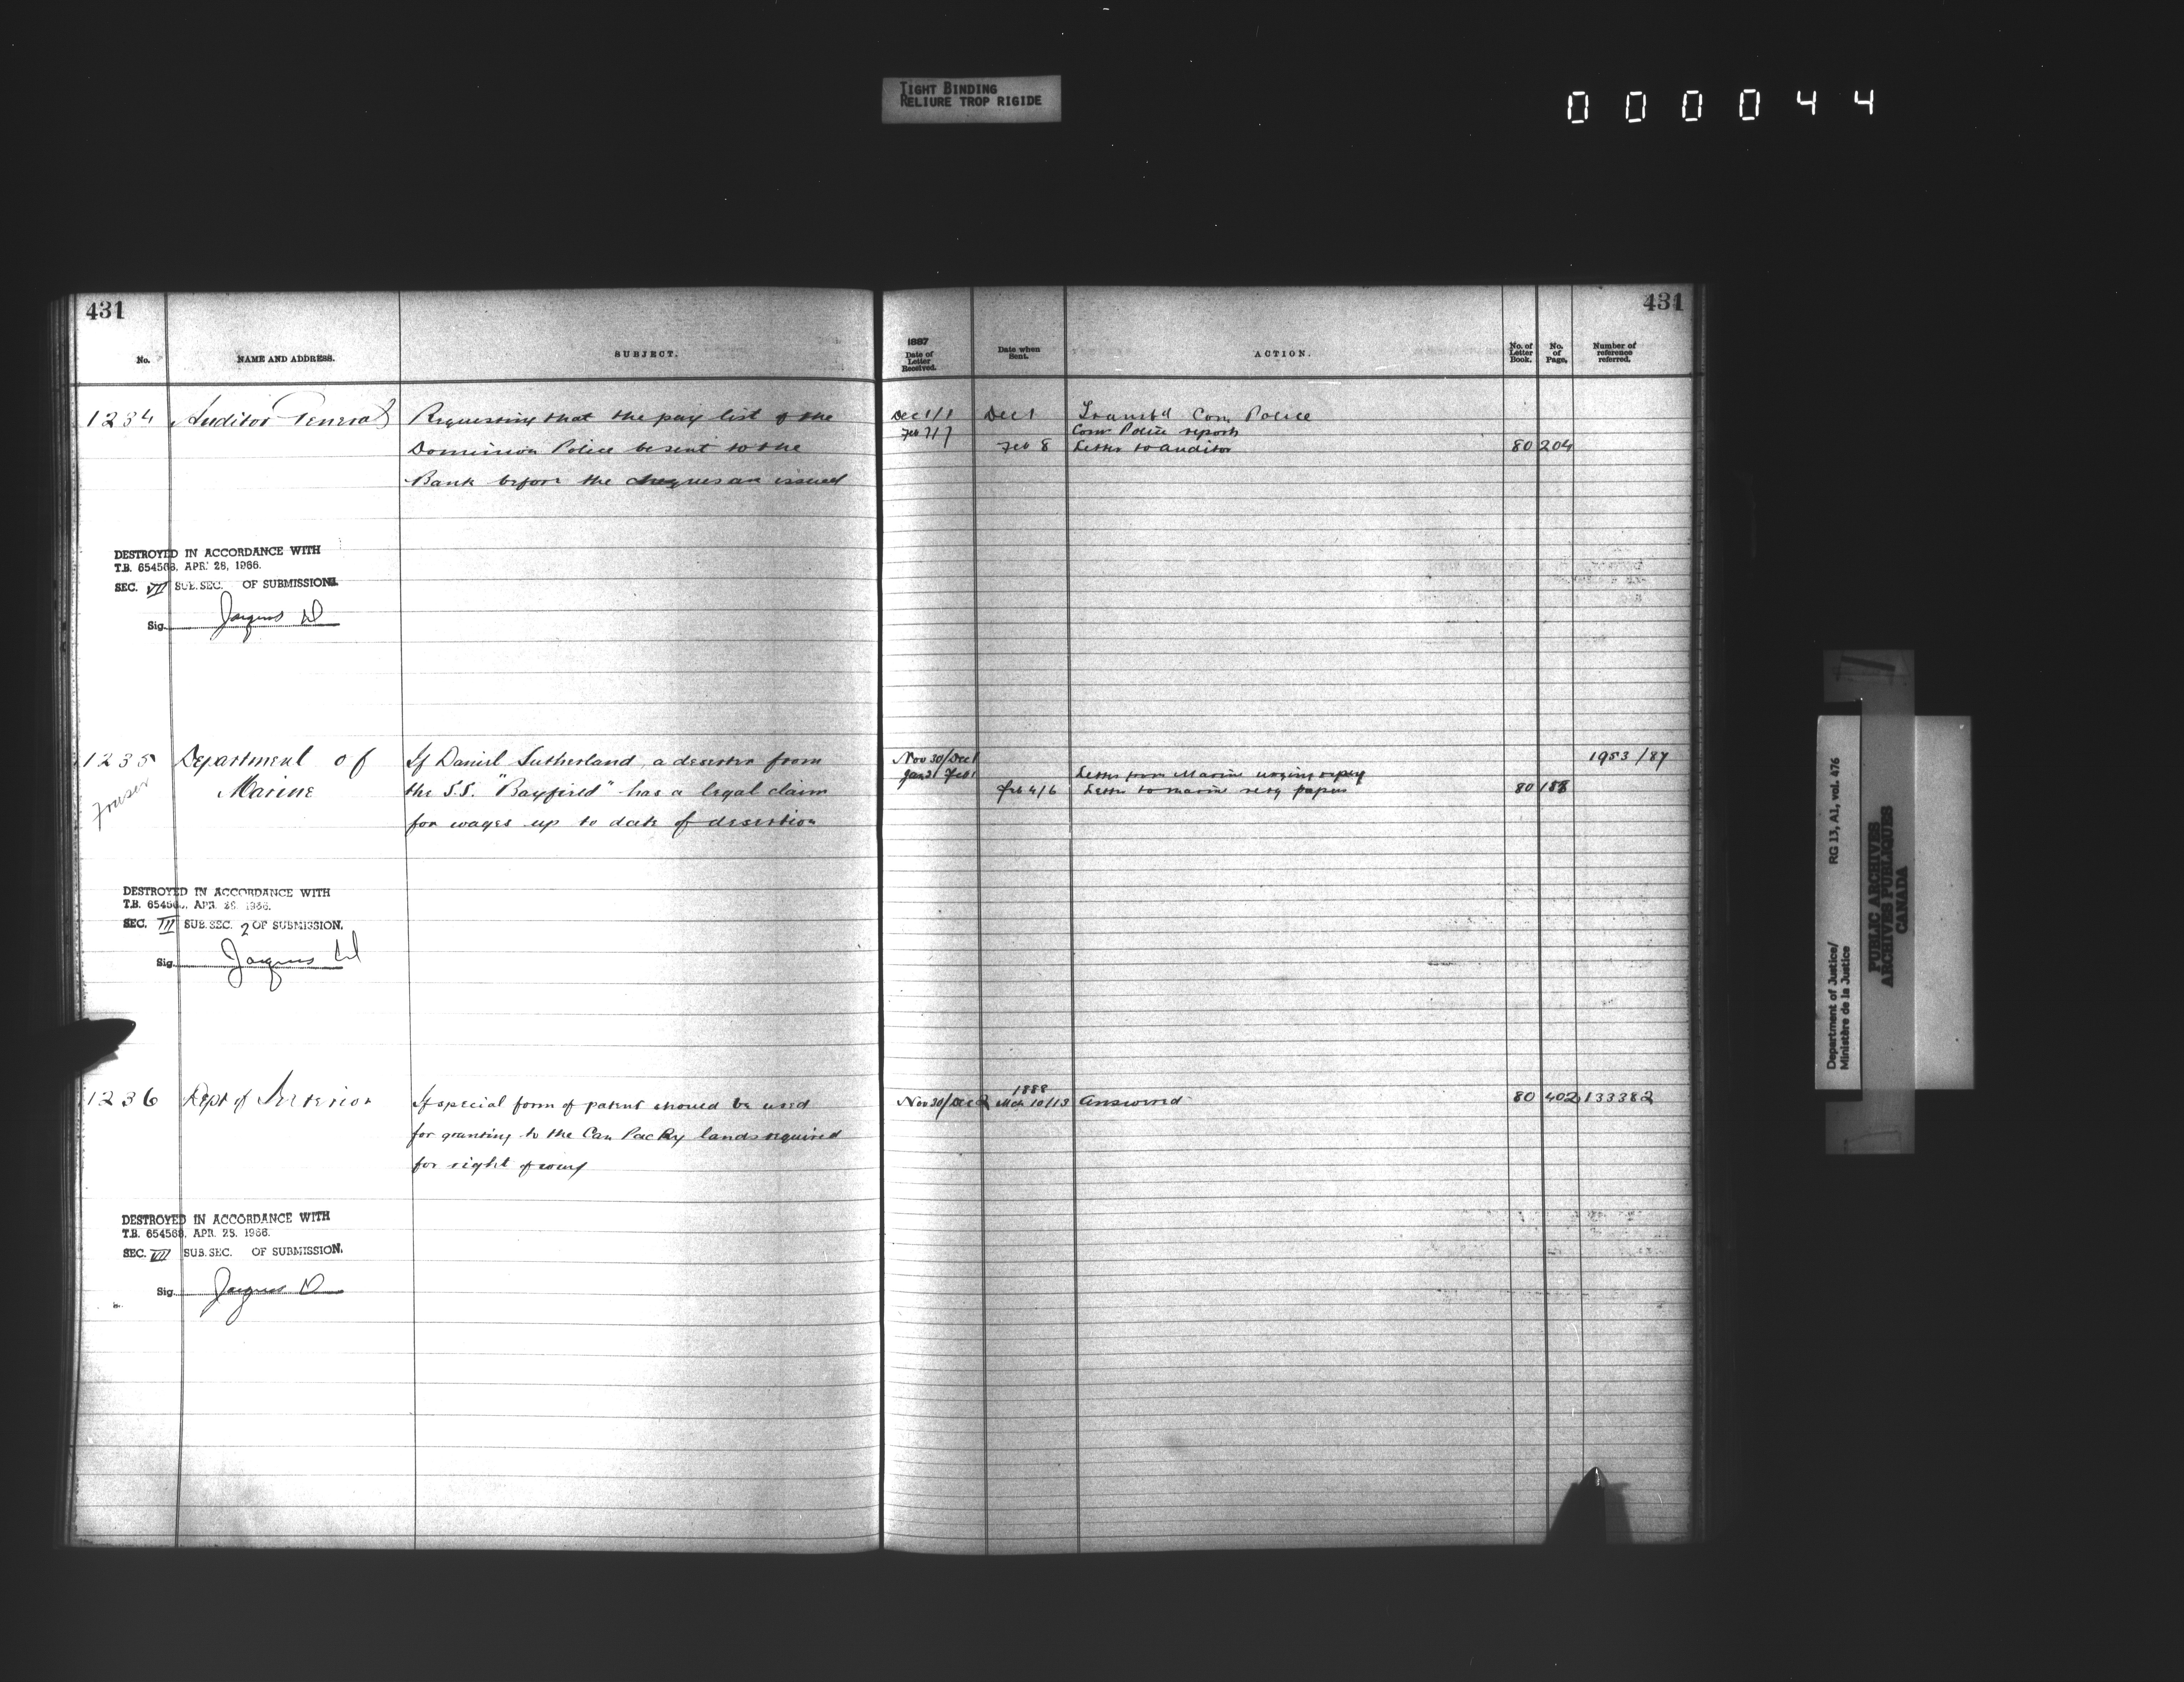 TIGHT BINDING
RELIURE TROP RIGIDE
000044
431
No.
NAME AND ADDRESS.
SUBJECT.
1234 Auditor General
Requesting that the pay list of the
Dominion Police be sent to the
Bank before the cheques are issued
DESTROYED IN ACCORDANCE WITH
T.B. 654568, APR. 28, 1966.
SEC. VII SUB.SEC. OF SUBMISSION.
Sig. Jacques
1235 Department of
Marine
Fraser
If Daniel Sutherland, a deserter from
the S.S. "Bayfield" has a legal claim
for wages up to date of desertion
DESTROYED IN ACCORDANCE WITH
T.B. 65456 APR. 1966.
SEC. III SUB.SEC. 2 OF SUBMISSION.
Sig. Jacques
1236 Dept of Interior
If special form of patent should be used
for granting to the Can Pac Ry lands required
for right of way
DESTROYED IN ACCORDANCE WITH
T.B. 654568, APR. 25, 1966.
SEC. VII SUB.SEC. OF SUBMISSION.
Sig. Jacques
431
1887
Date of
Letter
Received.
Date when
Sent.
ACTION.
No. of
Letter
Book.
No.
of
Page.
Number of
reference
referred.
Dec 1/1 Dec 1 Transtd Com Police
Feb 7/7 Com Police reports
Feb 8 Letter to Auditor 80 204
Nov 30/Dec 1 1953/87
Jan 31 Feb 1 Letter from Marine urging reply
Feb 4/6 Letter to Marine retg papers 80 188
1888
Nov 30/Dec 2 Mch 10/13 Answered 80 402 133382
Department of Justice/
Ministère de la Justice
RG 13, A1, vol. 476
PUBLIC ARCHIVES
ARCHIVES PUBLIQUES
CANADA